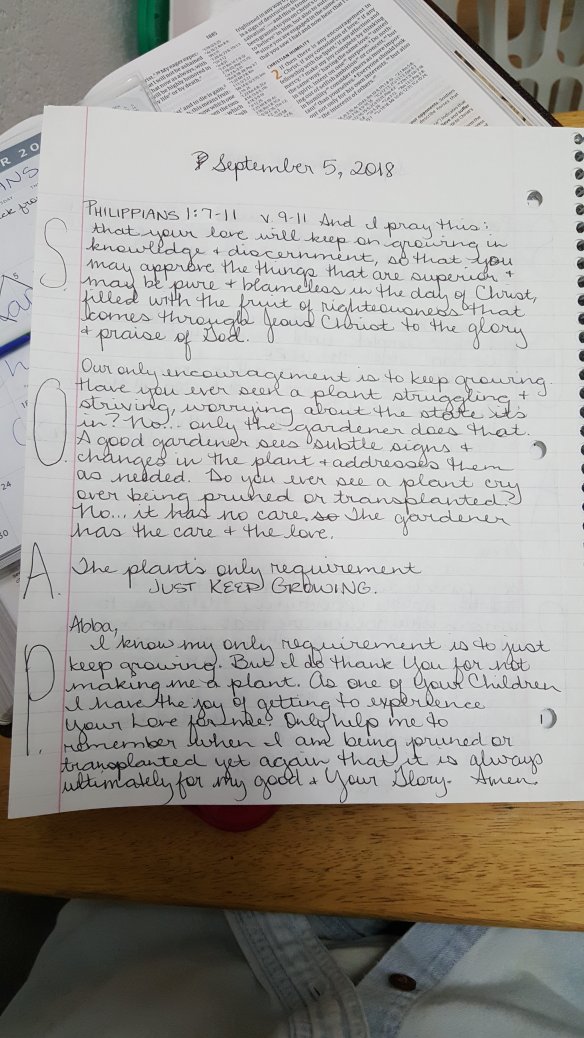 September 5, 2018
S.
PHILIPPIANS 1:7-11 v. 9-11 And I pray this:
that your love will keep on growing in
knowledge + discernment, so that you
may approve the things that are superior +
may be pure + blameless in the day of Christ,
filled with the fruit of righteousness that
comes through Jesus Christ to the glory
+ praise of God.
O.
Our only encouragement is to keep growing.
Have you ever seen a plant struggling +
striving, worrying about the state its
in? No... only the gardener does that.
A good gardener sees subtle signs +
changes in the plant + addresses them
as needed. Do you ever see a plant cry
over being pruned or transplanted?
No... it has no care. so The gardener
has the care + the love.
A.
The plant's only requirement
JUST KEEP GROWING.
P.
Abba,
I know my only requirement is to just
keep growing. But I do thank You for not
making me a plant. As one of Your Children
I have the joy of getting to experience
Your Love for me. Only help me to
remember when I am being pruned or
transplanted yet again that it is always
ultimately for my good + Your Glory. Amen.
R 20
24
30
CHRISTIAN HUMILITY
2